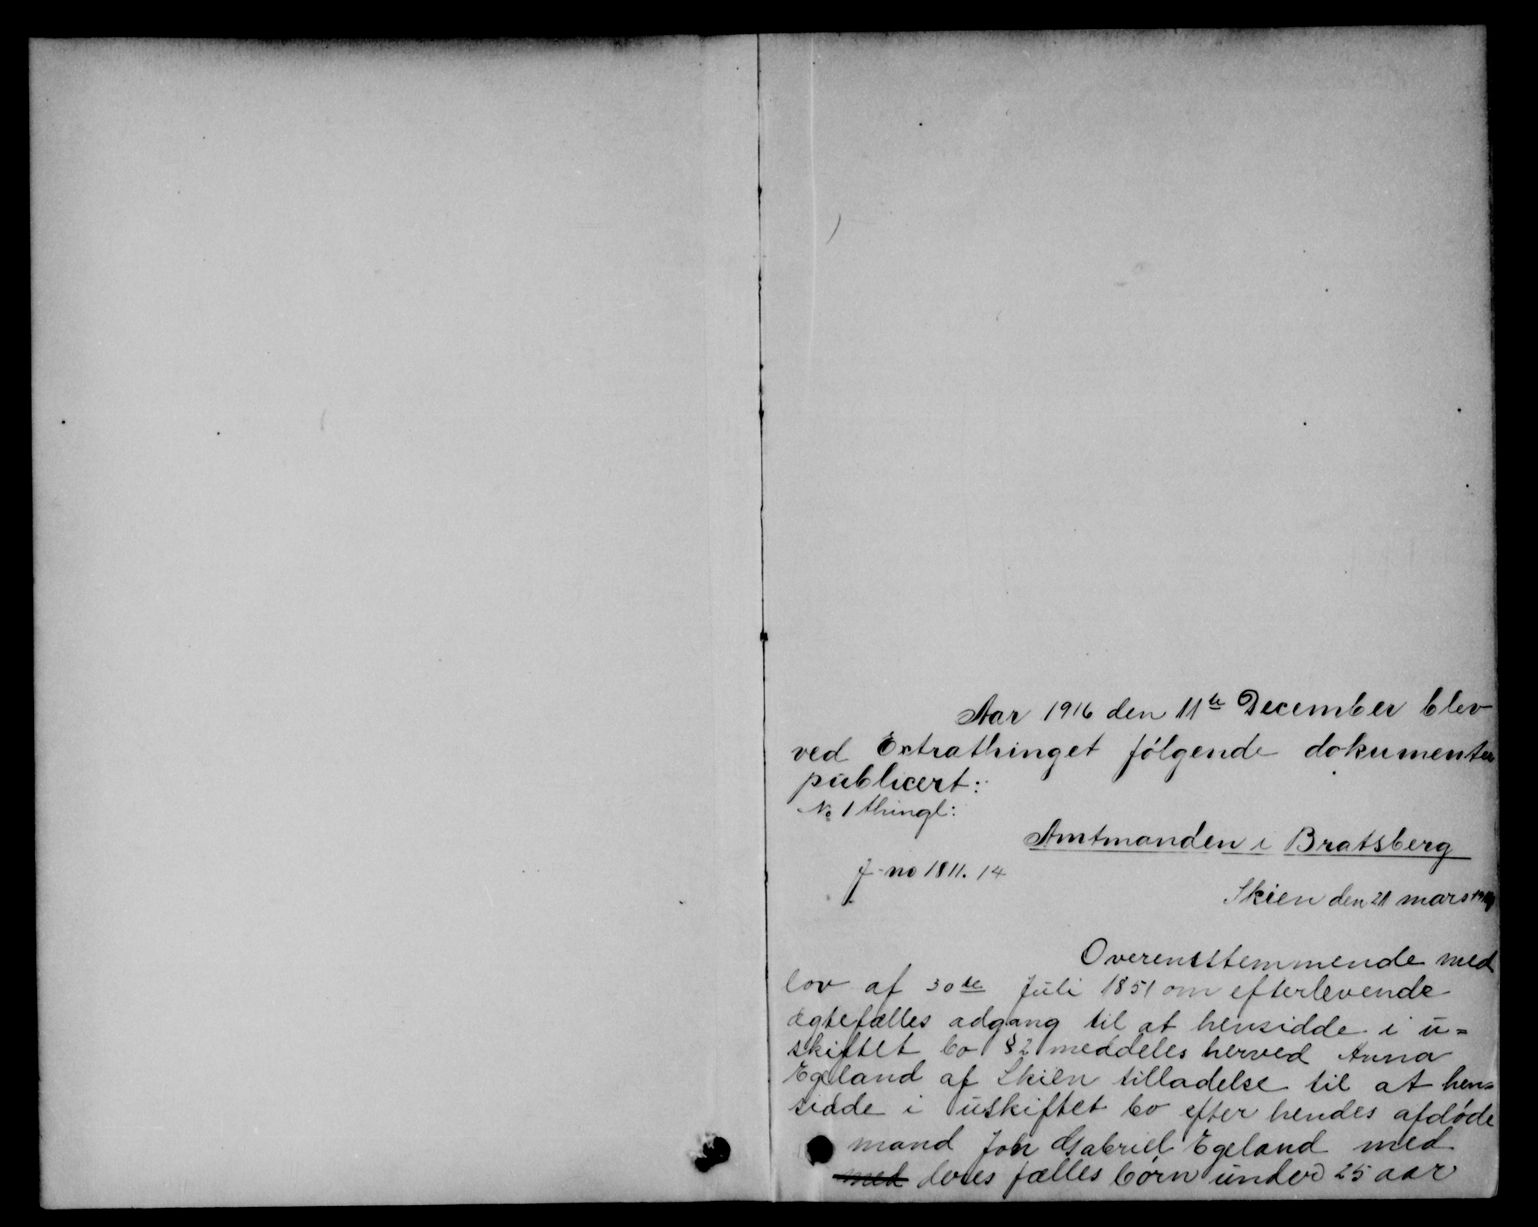 Aar 1916 den 11te December blev
ved Extrathinget følgende dokumenter
publicert:
No 1 thingl:
Amtmanden i Bratsberg
J-no 1811. 14
Skien den 21 mars
Overensstemmende med
lov af 30te Juli 1851 om efterlevende
ægtefælles adgang til at hensidde i u=
skiftet bo § 2 meddeles herved Anna
Egeland af Skien tilladelse til at hen=
sidde i uskiftet bo efter hendes afdøde
mand Joh Gabriel Egeland med
med deres fælles børn under 25 aar